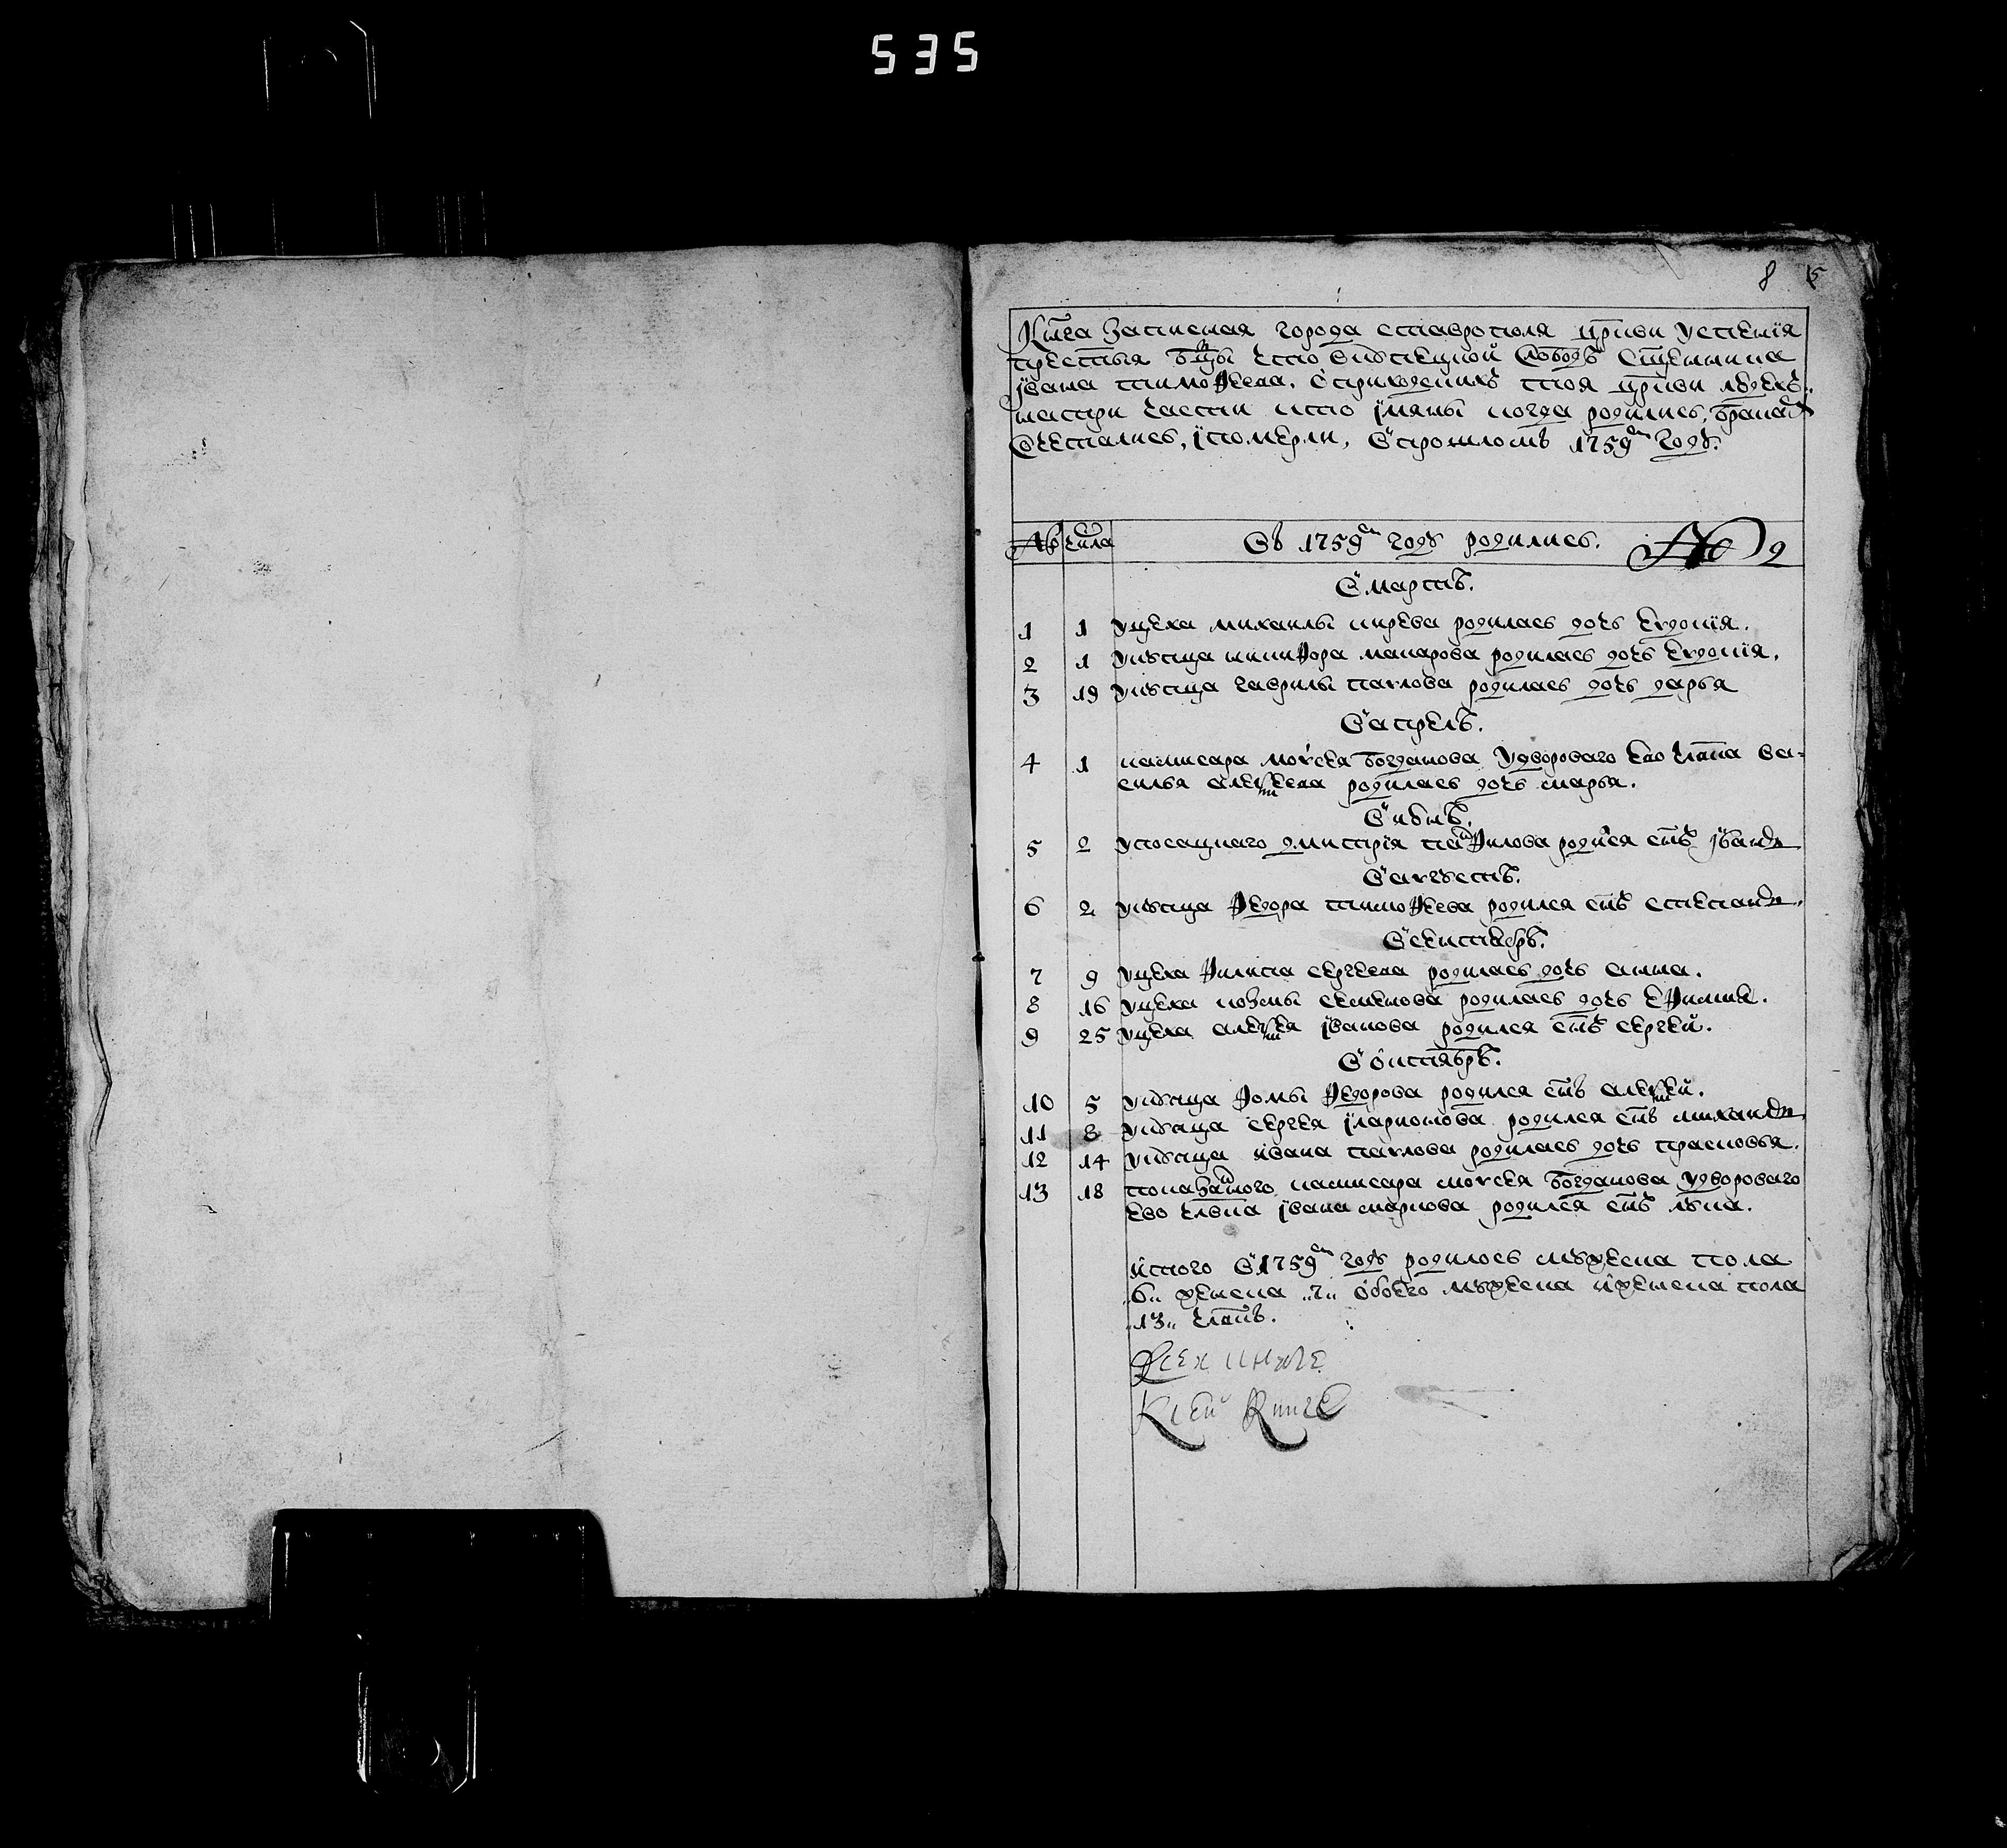 535
8 5
Книга записная города ставрополя цркви успения
пресвтыя бцы что вкупецкой слободѣ священника
ивана тимофеева. оприходскихъ тоя цркви людехъ.
кастри части кто имяны когда родились, бракомъ
сочетались, ипомерли, впрошломъ 1759м году.
№ числа Въ 1759м году родилис. № 2
Вмартѣ.
1 1 уцеха михаилы кирѣва родилась дочь евдокия.
2 1 укупца никифора макарова родилась дочь евдокия.
3 19 укупца гаврилы павлова родилась дочь дарья
Вапрелѣ.
4 1 камисара мосея богданова удвороваго ево члвка ва-
силья алексеева родилась дочь марья.
Виюнѣ.
5 2 упосацкаго дмитрия панфилова родился снъ иванъ
Вавгустѣ.
6 2 укупца федора тимофеева родился снъ степанъ.
Всентябрѣ.
7 9 уцеха филипа сергеева родилась дочь анна.
8 16 уцеха козмы семенова родилась дочь ефимия.
9 25 уцеха алексея иванова родился снъ сергей.
Воктябрѣ.
10 5 укупца фомы федорова родился снъ алексей.
11 8 укупца сергея иларионова родился снъ михаилъ
12 14 укупца ивана павлова родилась дочь прасковья.
13 18 показанного камисара мосея богданова удвороваго
ево члвка ивана маркова родился снъ лука.
итого в1759м году родилось мужеска пола
„6„ женска „7„ обоего мужеска иженска пола
„13„ члвкъ.
Ксей книге